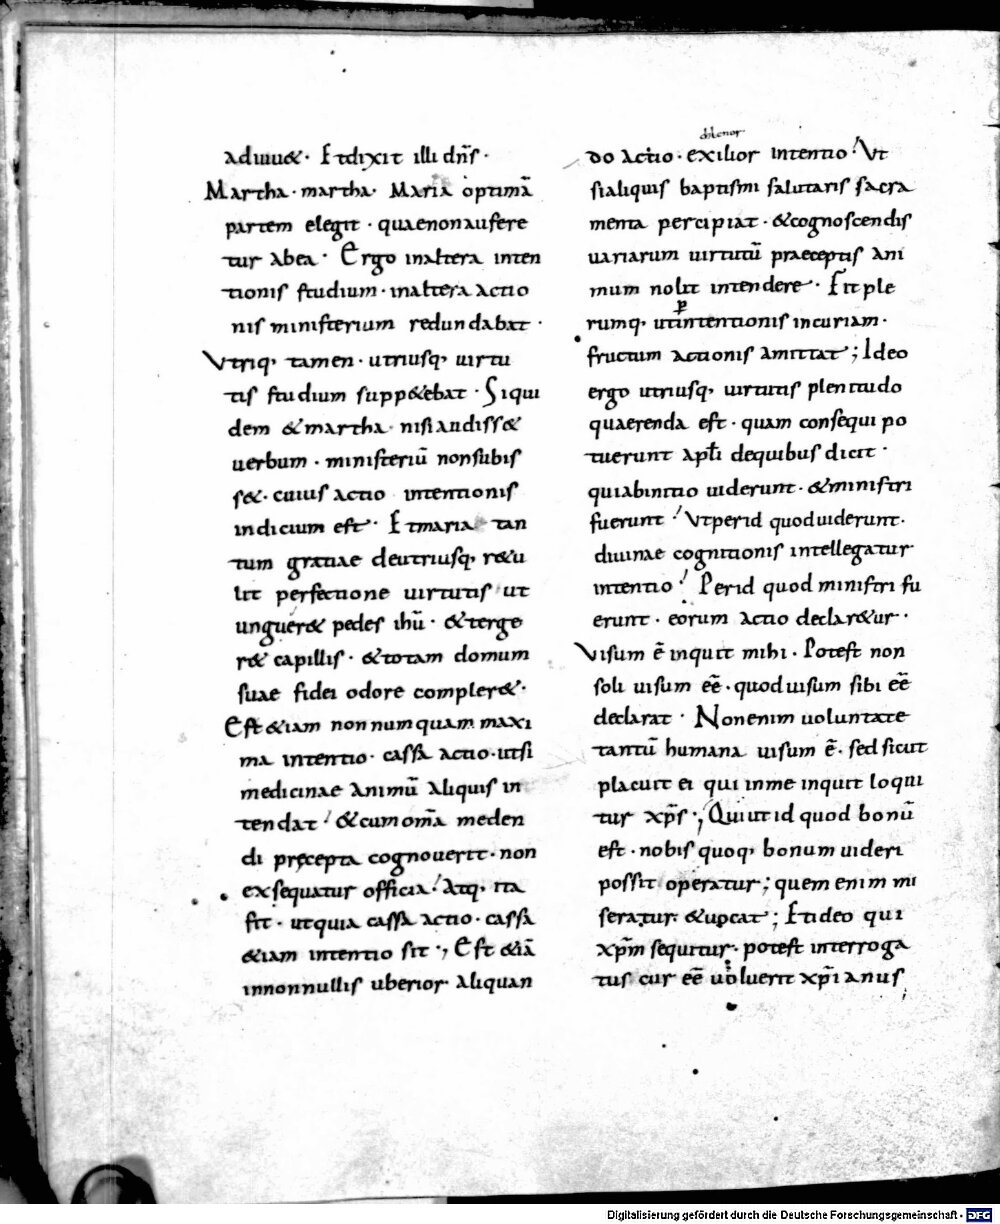 adiuu&. Et dixit illi dn̄s.
Martha. martha. Maria optimā
partem elegit. quae non aufere
tur ab ea. Ergo in altera inten
tionis studium. in altera actio
nis ministerium redundabat.
Vtriq, tamen. utriusq, uirtu
tis studium supp&ebat. Siqui
dem & martha. nisi audiss&
uerbum. ministeriū non subis
s&. cuius actio intentionis
indicium est. Et maria tan
tum gratiae de utriusq, r&u
lit perfectione uirtutis ut
unguer& pedes ihū. & terge
r& capillis. & totam domum
suae fidei odore compler&.
Est &iam non numquam maxi
ma intentio. cassa actio. ut si
medicinae animū aliquis in
tendat! & cum om̄a meden
di pręcepta cognouerit. non
exsequatur officia! Atq, ita
fit. ut quia cassa actio. cassa
&iam intentio sit., Est &iā
in nonnullis uberior aliquan
do actio. exilior intentio! Vt
si aliquis baptismi salutaris sacra
menta percipiat. & cognoscendis
uariarum uirtutū praeceptis ani
mum nolit intendere. Fit ple
rumq, ut p intentionis incuriam.
fructum actionis amittat; Ideo
ergo utriusq, uirtutis plenitudo
quaerenda est. quam consequi po
tuerunt apłi de quibus dicit.
qui ab initio uiderunt. & ministri
fuerunt! Vt per id quod uiderunt.
diuinae cognitionis intellegatur
intentio! Per id quod ministri fu
erunt. eorum actio declar&ur.
Visum ē inquit mihi. Potest non
soli uisum eē. quod uisum sibi eē
declarat. Non enim uoluntate
tantū humana uisum ē. sed sicut
placuit ei qui in me inquit loqui
tur xp̄s., Qui ut id quod bonū
est. nobis quoq, bonum uideri
possit operatur; quem enim mi
seratur. & uocat; Et ideo qui
xp̄m sequitur. potest interroga
tus cur eē uoluerit xp̄ianus,
Digitalisierung gefördert durch die Deutsche Forschungsgemeinschaft - DFG